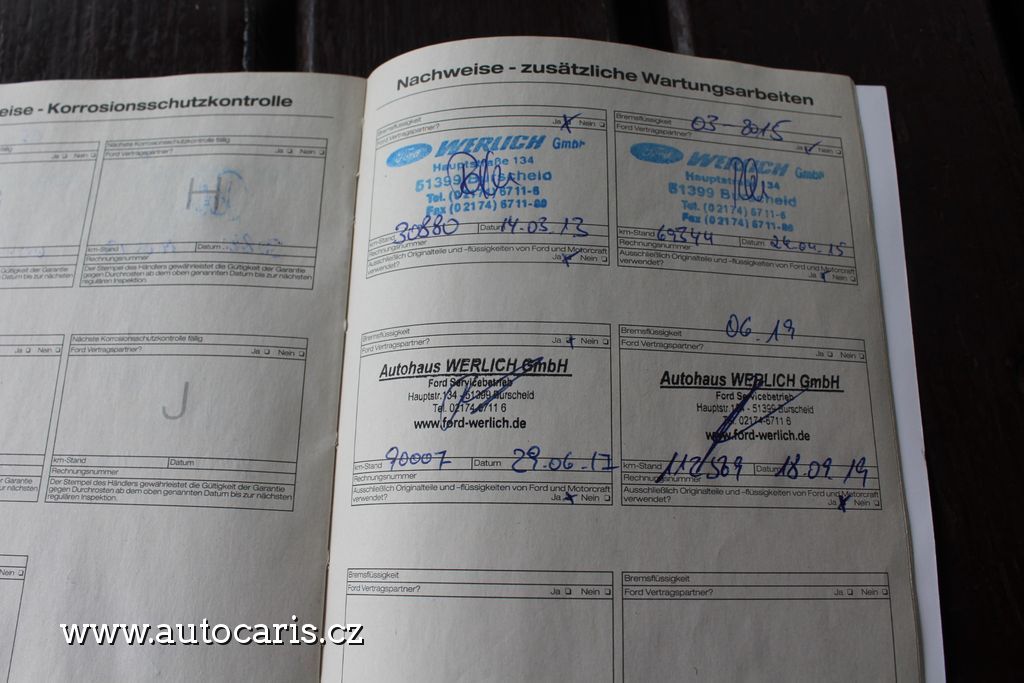 eise - Korrosionsschutzkontrolle
Ja Nein
Nächste Korrosionsschutzkontrolle fällig
Ford Vertragspartner? Ja Nein
H
km-Stand Datum
Rechnungsnummer
Gültigkeit der Garantie
Datum bis zur nächsten
Der Stempel des Händlers gewährleistet die Gültigkeit der Garantie
gegen Durchrosten ab dem oben genannten Datum bis zur nächsten
regulären Inspektion.
Ja Nein
Nächste Korrosionsschutzkontrolle fällig
Ford Vertragspartner? Ja Nein
J
km-Stand Datum
Rechnungsnummer
Gültigkeit der Garantie
Datum bis zur nächsten
Der Stempel des Händlers gewährleistet die Gültigkeit der Garantie
gegen Durchrosten ab dem oben genannten Datum bis zur nächsten
regulären Inspektion.
Nein
Nachweise - zusätzliche Wartungsarbeiten
Bremsflüssigkeit
Ford Vertragspartner? Ja Nein
Ford WERLICH GmbH
Hauptstraße 134
51399 Burscheid
Tel. (02174) 6711-6
Fax (02174) 6711-88
km-Stand 30880 Datum 14.03.13
Rechnungsnummer
Ausschließlich Originalteile und -flüssigkeiten von Ford und Motorcraft
verwendet? Ja Nein
Bremsflüssigkeit 03-2015
Ford Vertragspartner? Ja Nein
Ford WERLICH GmbH
Hauptstraße 134
51399 Burscheid
Tel. (02174) 6711-6
Fax (02174) 6711-88
km-Stand 69244 Datum 24.04.15
Rechnungsnummer
Ausschließlich Originalteile und -flüssigkeiten von Ford und Motorcraft
verwendet? Ja Nein
Bremsflüssigkeit
Ford Vertragspartner? Ja Nein
Autohaus WERLICH GmbH
Ford Servicebetrieb
Hauptstr.134 - 51399 Burscheid
Tel. 02174-6711 6
www.ford-werlich.de
km-Stand 90007 Datum 29.06.17
Rechnungsnummer
Ausschließlich Originalteile und -flüssigkeiten von Ford und Motorcraft
verwendet? Ja Nein
Bremsflüssigkeit 06.19
Ford Vertragspartner? Ja Nein
Autohaus WERLICH GmbH
Ford Servicebetrieb
Hauptstr.134 - 51399 Burscheid
Tel. 02174-6711 6
www.ford-werlich.de
km-Stand 112589 Datum 18.09.19
Rechnungsnummer
Ausschließlich Originalteile und -flüssigkeiten von Ford und Motorcraft
verwendet? Ja Nein
Bremsflüssigkeit
Ford Vertragspartner? Ja Nein
Bremsflüssigkeit
Ford Vertragspartner? Ja Nein
www.autocaris.cz